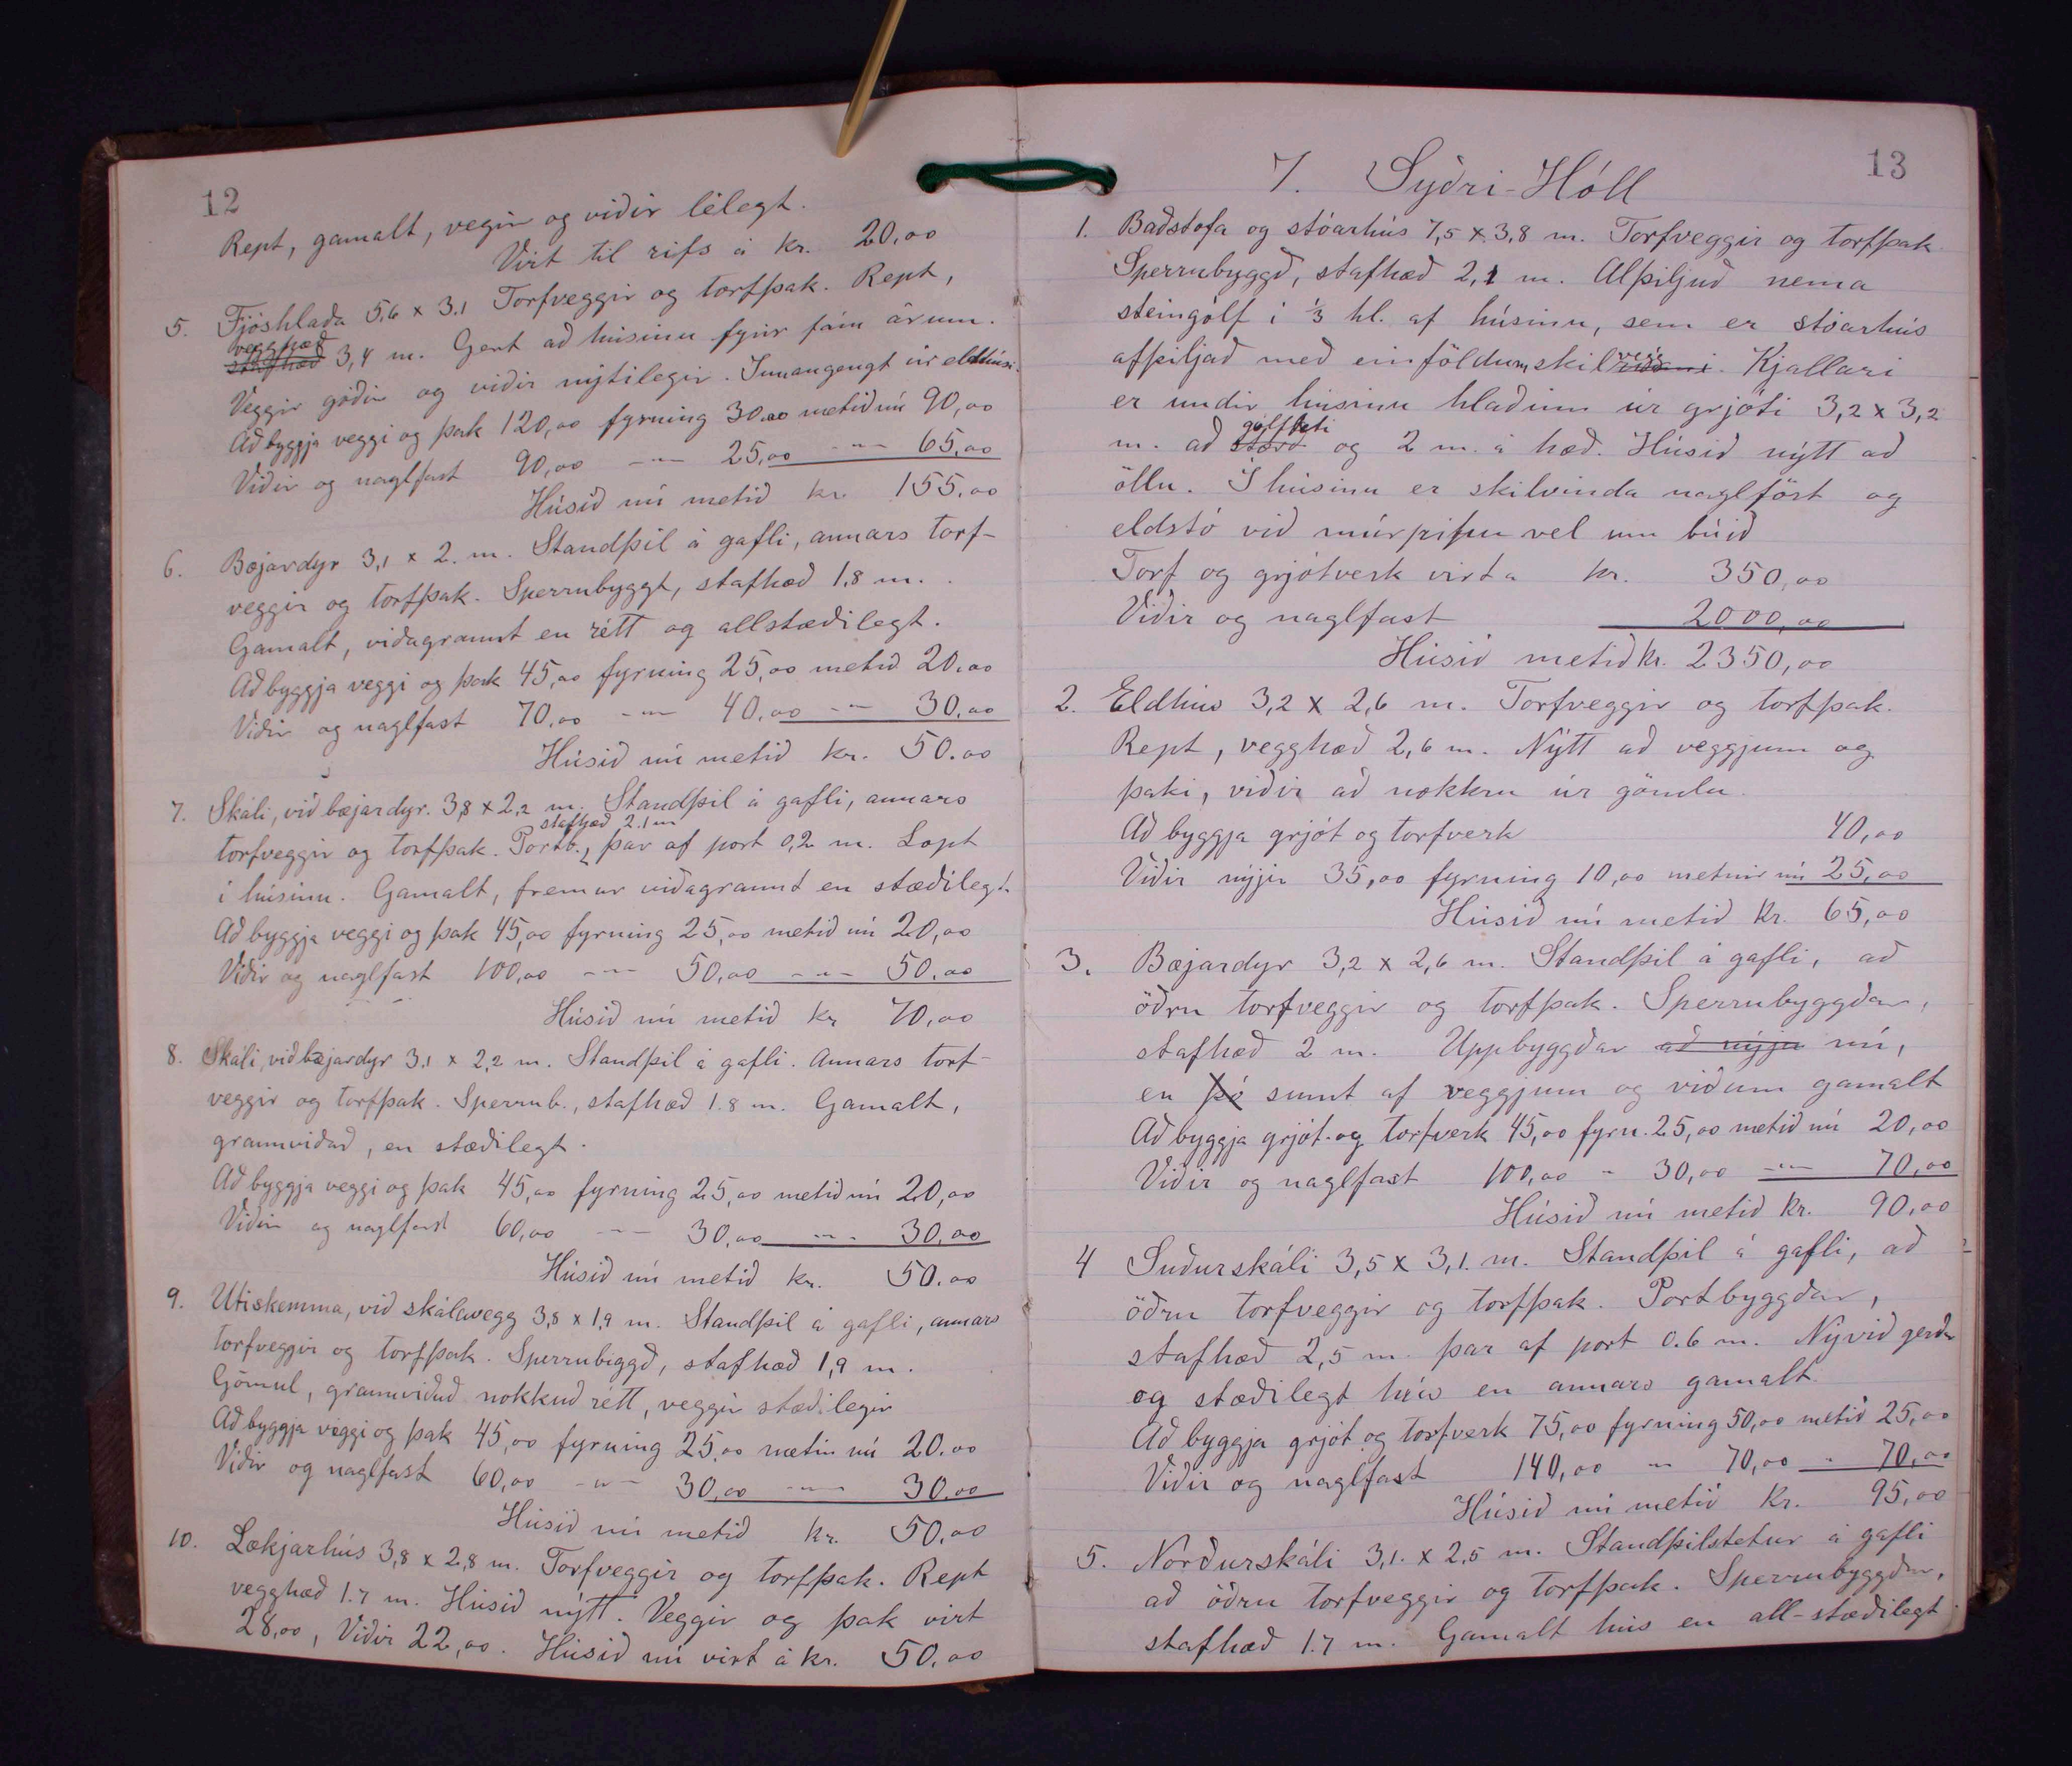 12
Rept, gamalt, vegir og viðir lélegt.
Virt til rifs á kr. 20,00
5. Fjóshlaða 5,6 x 3.1 Torfveggir og torfþak. Rept,
vegghæð
stafhæð 3,4 m. Gert að húsinu fyrir fám árum.
Veggir góðir og viðir nýtilegir. Innangengt úr eldhúsi.
Að byggja veggi og þak 120,00 fyrning 30.00 metið nú 90,00
Viðir og naglfast 90,00 -"- 25,00 -"- 65,00
Húsið nú metið kr 155.00
6. Bæjardyr 3,1 x 2. m. Standþil á gafli, annars torf-
veggir og torfþak. Sperrubyggt, stafhæð 1,8 m.
Gamalt, viðagrannt en rétt og allstæðilegt.
Að byggja veggi og þak 45,00 fyrning 25,00 metið 20.00
Viðir og naglfast 70,00 -"- 40,00 -"- 30.00
Húsið nú metið kr. 50.00
7. Skáli, við bæjardyr. 3,8 x 2,2 m. Standþil á gafli, annars
stafhæð 2.1 m
torfveggir og torfþak. Portb., þar af port 0,2 m. Lopt
í húsinu. Gamalt, fremur viðagrannt en stæðilegt.
Að byggja veggi og þak 45,00 fyrning 25,00 metið nú 20,00
Viðir og naglfast 100,00 -"- 50,00 -"- 50.00
Húsið nú metið kr 70,00
8. Skáli, við bæjardyr 3.1 x 2,2 m. Standþil á gafli. Annars torf-
veggir og torfþak. Sperrub., stafhæð 1.8 m. Gamalt,
grannviðað, en stæðilegt.
Að byggja veggi og þak 45,00 fyrning 25,00 metið nú 20,00
Viðir og naglfast 60,00 -"- 30,00 -"- 30,00
Húsið nú metið kr. 50.00
9. Útiskemma, við skálavegg 3,8 x 1,9 m. Standþil á gafli, annars
torfveggir og torfþak. Sperrubiggð, stafhæð 1,9 m.
Gömul, grannviðuð nokkuð rétt, veggir stæðilegir
Að byggja veggi og þak 45,00 fyrning 25.00 metin nú 20.00
Viðir og naglfast 60,00 -"- 30,00 -"- 30.00
Húsið nú metið kr. 50,00
10. Lækjarhús 3,8 x 2,8 m. Torfveggir og torfþak. Rept
vegghæð 1.7 m. Húsið nýtt. Veggir og þak virt
28,00, Viðir 22,00. Húsið nú virt á kr. 50.00
13
7. Syðri-Hóll
1. Baðstofa og stóarhús 7,5 x 3,8 m. Torfveggir og torfþak.
Sperrubyggð, stafhæð 2,1 m. Alþiljuð nema
steingólf í 1/3 hl. af húsinu, sem er stóarhús
afþiljað með einföldum skilvegg. Kjallari
er undir húsinu hlaðinn úr grjóti 3,2 x 3,2
gólffleti
m. að stærð og 2 m. á hæð. Húsið nýtt að
öllu. Í húsinu er skilvinda naglföst og
eldstó við múrpípu vel um búið
Torf og grjótverk virt á kr. 350,00
Viðir og naglfast 2000,00
Húsið metið kr. 2350,00
2. Eldhús 3,2 x 2,6 m. Torfveggir og torfþak.
Rept, vegghæð 2,6 m. Nýtt að veggjum og
þaki, viðir að nokkru úr gömlu.
Að byggja grjót og torfverk 40,00
Viðir nýjir 35,00 fyrning 10,00 metnir nú 25,00
Húsið nú metið kr. 65,00
3. Bæjardyr 3,2 x 2,6 m. Standþil á gafli, að
öðru torfveggir og torfþak. Sperrubyggðar,
stafhæð 2 m. Uppbyggðar að nýju nú,
en þó sumt af veggjum og viðum gamalt
Að byggja grjót og torfverk 45,00 fyrn. 25,00 metið nú 20,00
Viðir og naglfast 100,00 " 30,00 -"- 70,00
Húsið nú metið kr. 90,00
4 Suðurskáli 3,5 x 3,1. m. Standþil á gafli, að
öðru torfveggir og torfþak. Portbyggðar,
stafhæð 2,5 m. þar af port 0.6 m. Nývið gerðr
og stæðilegt hús en annars gamalt.
Að byggja grjót og torfverk 75,00 fyrning 50,00 metið 25,00
Viðir og naglfast 140,00 -"- 70,00 " 70,00
Húsið nú metið kr. 95,00
5. Norðurskáli 3,1. x 2,5 m. Standþilstetur á gafli
að öðru torfveggir og torfþak. Sperrubyggðar,
stafhæð 1.7 m. Gamalt hús en all-stæðilegt